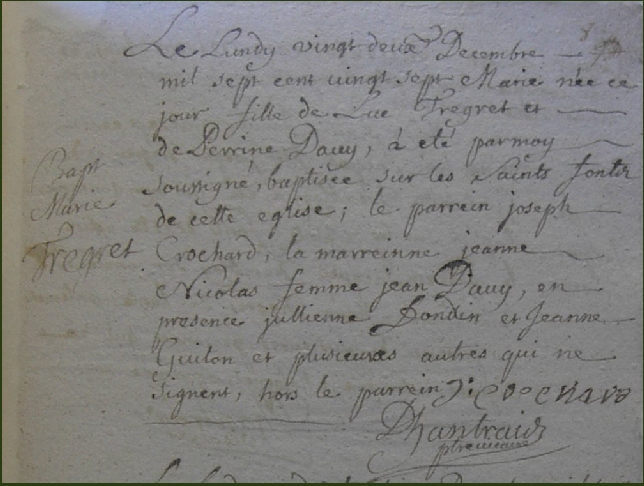 Le Lundy vingt deuxe Decembre
mil sept cent vingt sept Marie née ce
jour fille de Luc Tregret et
de Perrine Davy, à eté parmoy
soussigné, baptisée sur les Saints fonts
Bapt
Marie
Tregret
de cette eglise; le parrein joseph
Crochard, la marreinne jeanne
Nicolas femme jean Davy, en
presence jullienne Dondin et Jeanne
Guiton et plusieures autres qui ne
signent, hors le parrein J: Crochard